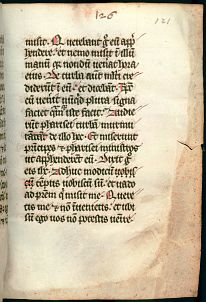 126
121
misit. Querebant g est app
hendere. et nemo misit i illu
manu qr nondu venerat hora
eius. De turba aut mlti cre
diderunt i eu. et dicebat. xpc
cu venit unqd plura signa
faciet quam que iste facit. Audie
rut pharisei turba murmu
rate de illo hec. Et miserut
principes et pharisei ministros
ut apphenderet eu. Dixit g
eis ihc. Adhuc modicu tps
vobiscu su. et vado
ad prem q misit me. Quere
tis me et no invenietis. et ubi
sum ego vos no potestis venire